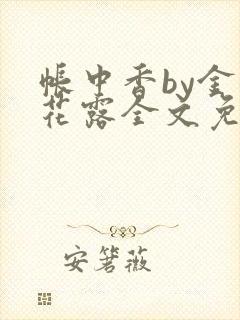 帐中香by金
花露全文免
安箬薇